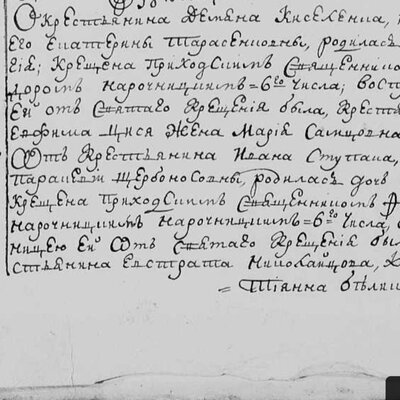 Окрестьянина Демяна Киселенка,
Его Екатерины Тарасенковны, родилась
ѣія; Крещена Приходскимъ Священникомъ
доромъ Нарочницкимъ = 6го числа; Восп
Ей отъ Святаго Крещенія была, Крестья
Евфима жена Марія
Отъ Крестьянина Ивана Ступака,
Параскеви Щербоносовны, родилась дочь
Крещена Приходскимъ Священникомъ
Нарочницкимъ = 6го числа,
ницею Ей Отъ Святаго Крещенія был
стьянина Евстрата Николайцова,
= тіянна бѣли